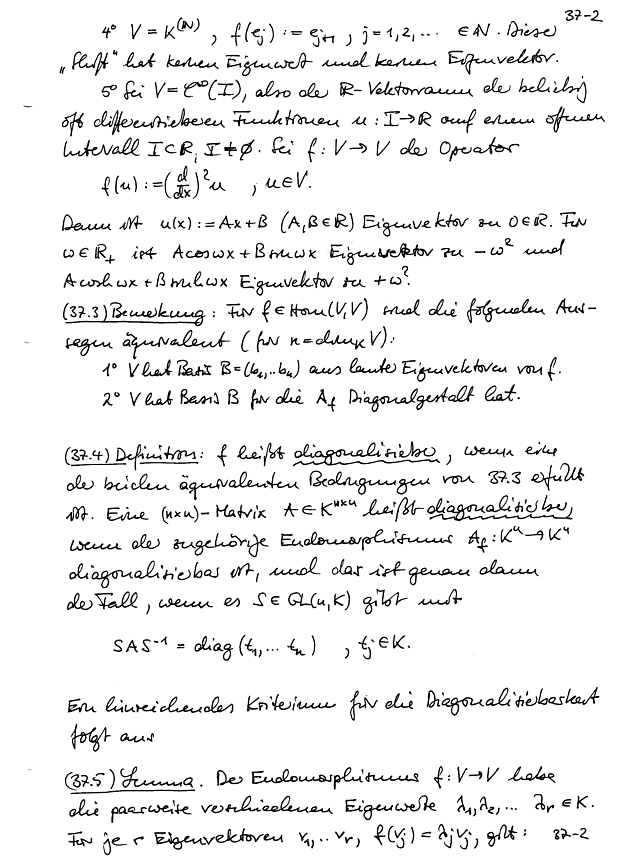 37-2
4° V = K^(ℕ) , f(e_j) := e_{j+1} , j = 1,2,... ∈ ℕ. Diese
„Shift" hat keinen Eigenwert und keinen Eigenvektor.
5° Sei V = C^∞(I), also der ℝ-Vektorraum der beliebig
oft differenzierbaren Funktionen u : I → ℝ auf einem offenen
Intervall I ⊂ ℝ, I ≠ ∅. Sei f : V → V der Operator
f(u) := (d/dx)² u , u ∈ V.
Dann ist u(x) := Ax + B (A, B ∈ ℝ) Eigenvektor zu 0 ∈ ℝ. Für
ω ∈ ℝ₊ ist A cos ωx + B sin ωx Eigenvektor zu −ω² und
A cosh ωx + B sinh ωx Eigenvektor zu +ω².
(37.3) Bemerkung : Für f ∈ Hom(V,V) sind die folgenden Aus-
sagen äquivalent (für n = dim_K V):
1° V hat Basis B = (b₁,..b_n) aus lauter Eigenvektoren von f.
2° V hat Basis B für die A_f Diagonalgestalt hat.
(37.4) Definition : f heißt diagonalisierbar, wenn eine
der beiden äquivalenten Bedingungen von 37.3 erfüllt
ist. Eine (n×n)-Matrix A ∈ K^{n×n} heißt diagonalisierbar,
wenn der zugehörige Endomorphismus A_f : K^n → K^n
diagonalisierbar ist, und das ist genau dann
der Fall, wenn es S ∈ GL(n,K) gibt mit
SAS⁻¹ = diag (t₁,... t_n) , t_j ∈ K.
Ein hinreichendes Kriterium für die Diagonalisierbarkeit
folgt aus
(37.5) Lemma. Der Endomorphismus f : V → V habe
die paarweise verschiedenen Eigenwerte λ₁, λ₂,... λ_r ∈ K.
Für je r Eigenvektoren v₁,.. v_r, f(v_j) = λ_j v_j, gilt : 37-2